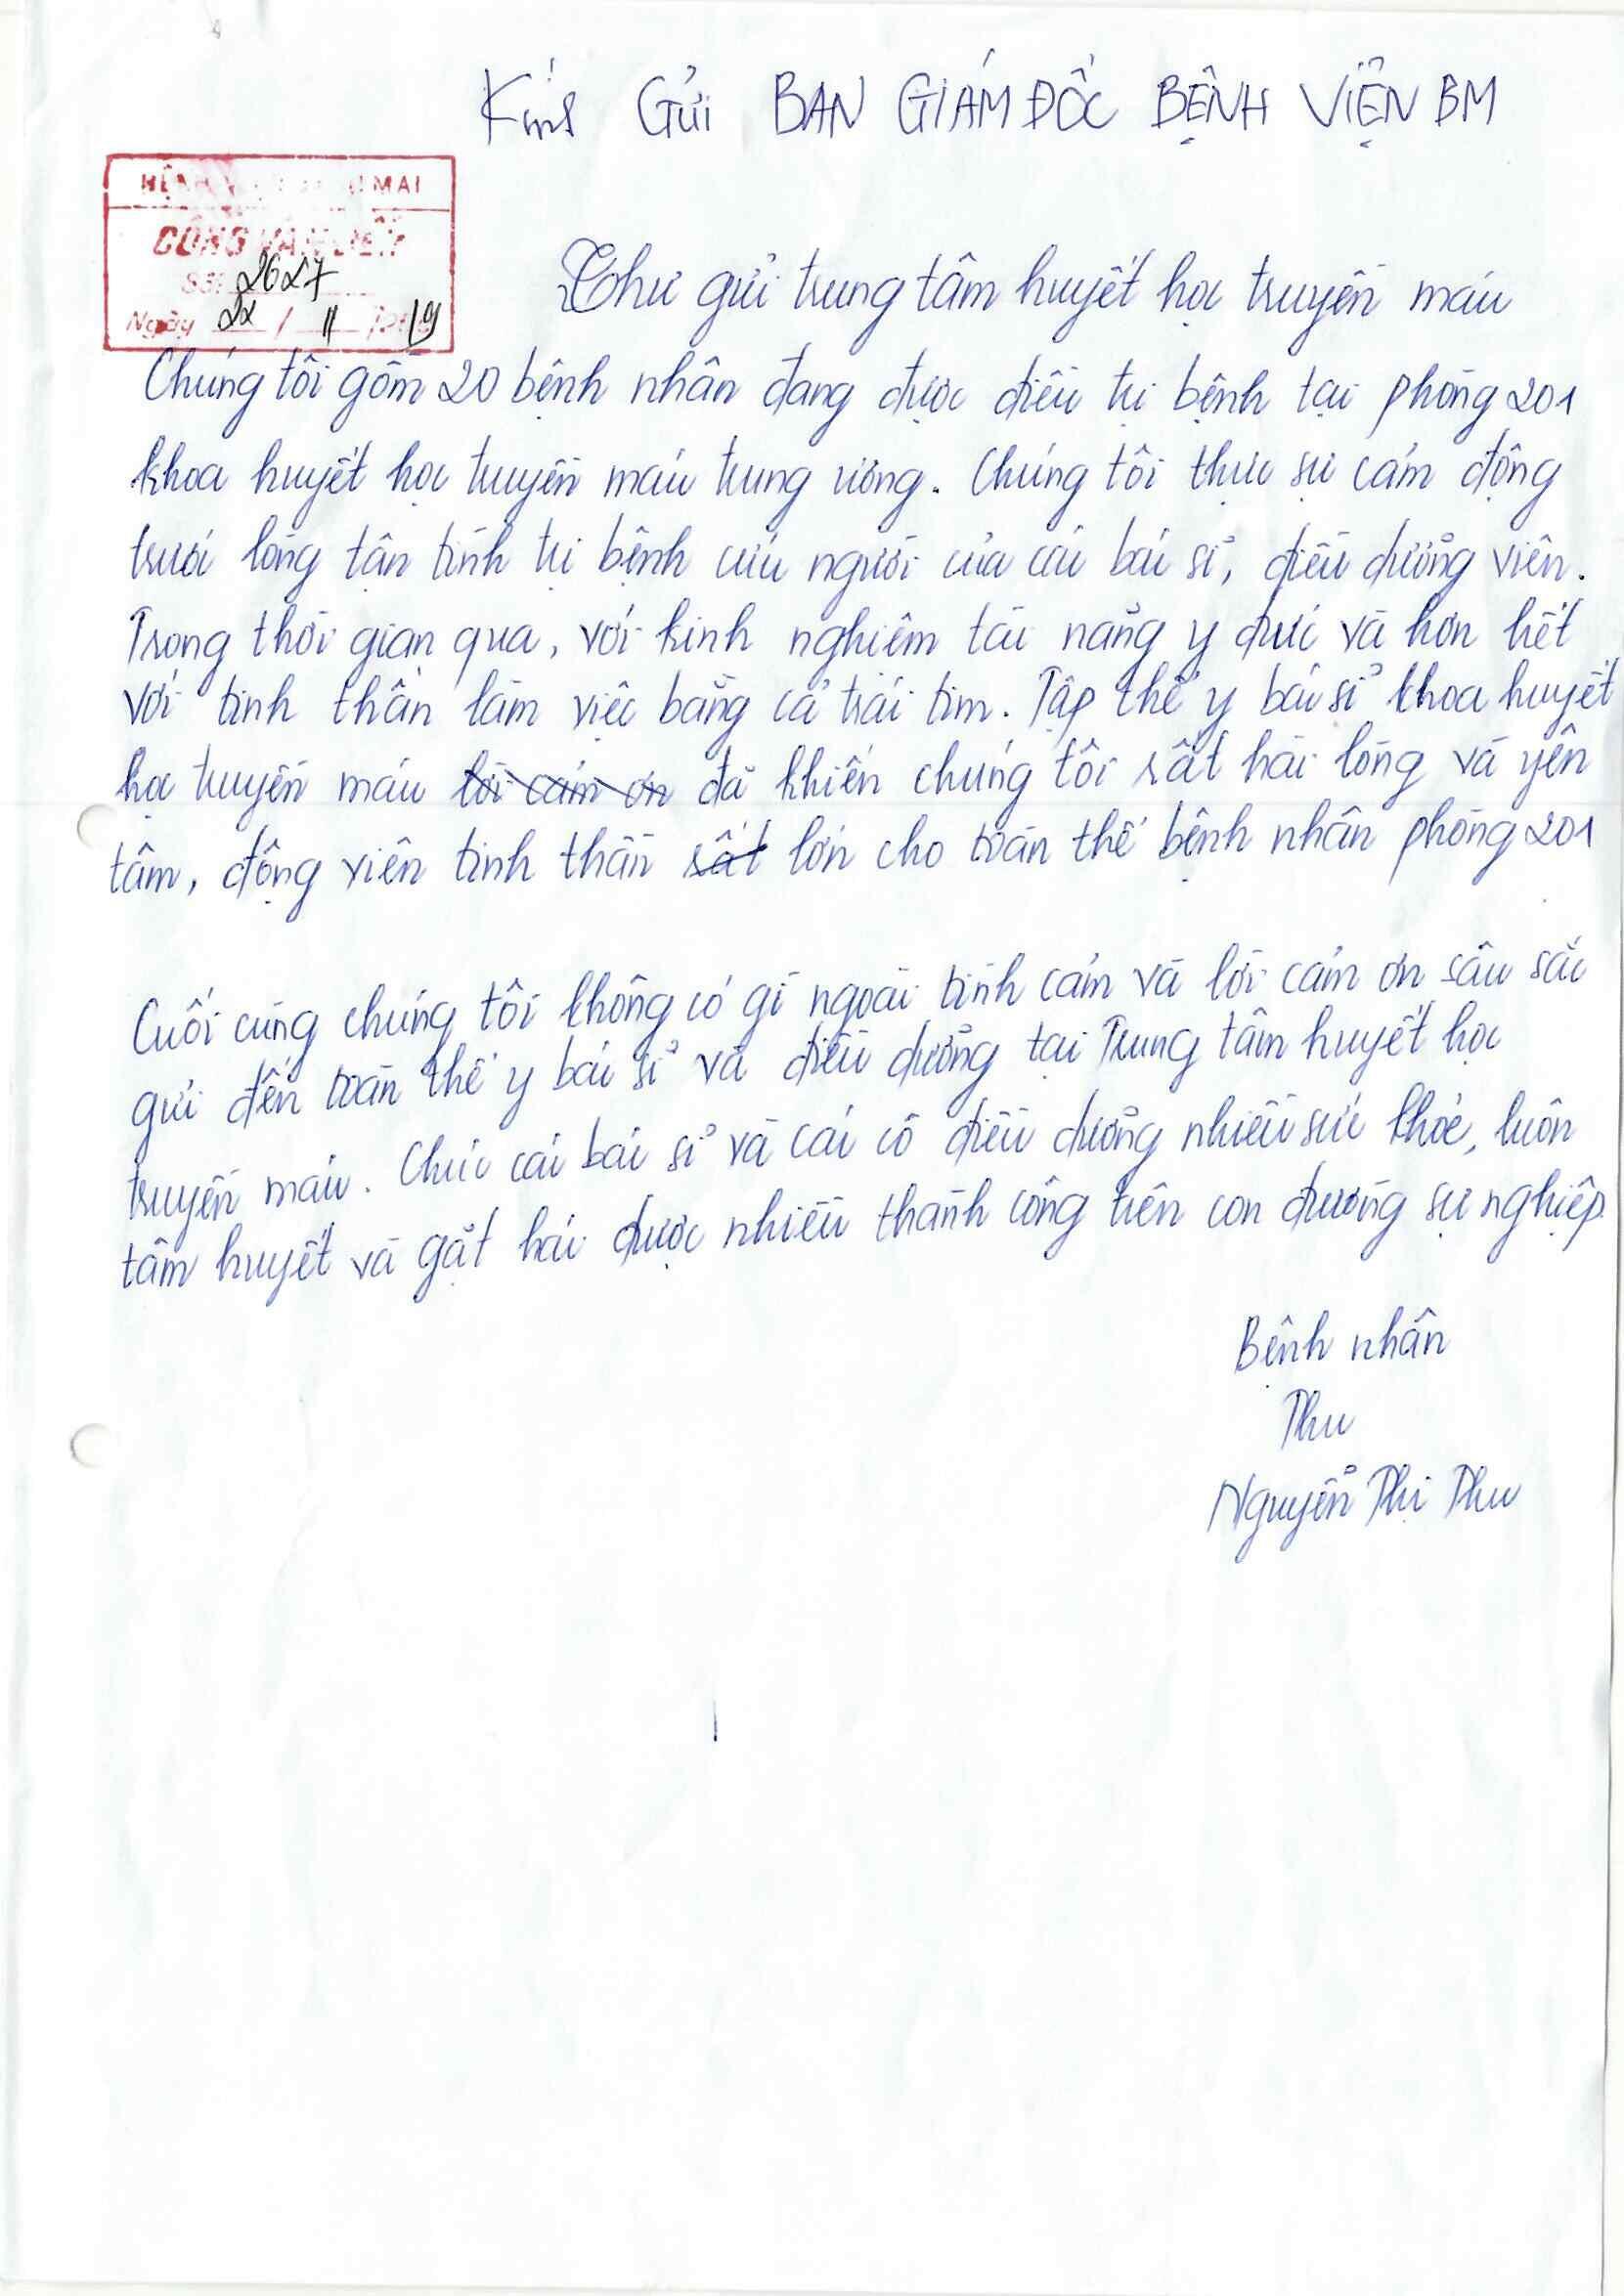 Kính Gửi BAN GIÁM ĐỐC BỆNH VIỆN BM
BỆNH MAI
CÔNG VĂN ĐẾN
Số: 2627
Ngày 22 / 11 /2019
Thư gửi trung tâm huyết học truyền máu
Chúng tôi gồm 20 bệnh nhân đang được điều trị bệnh tại phòng 201
khoa huyết học truyền máu trung ương. Chúng tôi thực sự cảm động
trước lòng tận tình trị bệnh cứu người của các bác sĩ, điều dưỡng viên.
Trong thời gian qua, với kinh nghiêm tài năng y đức và hơn hết
với tinh thần làm việc bằng cả trái tim. Tập thể y bác sĩ khoa huyết
học truyền máu lời cảm ơn đã khiến chúng tôi rất hài lòng và yên
tâm, động viên tinh thần rất lớn cho toàn thể bệnh nhân phòng 201
Cuối cùng chúng tôi không có gì ngoài tình cảm và lời cảm ơn sâu sắc
gửi đến toàn thể y bác sĩ và điều dưỡng tại Trung tâm huyết học
truyền máu. Chúc các bác sĩ và các cô điều dưỡng nhiều sức khỏe, luôn
tâm huyết và gặt hái được nhiều thành công trên con đường sự nghiệp.
Bệnh nhân
Thu
Nguyễn Thị Thu